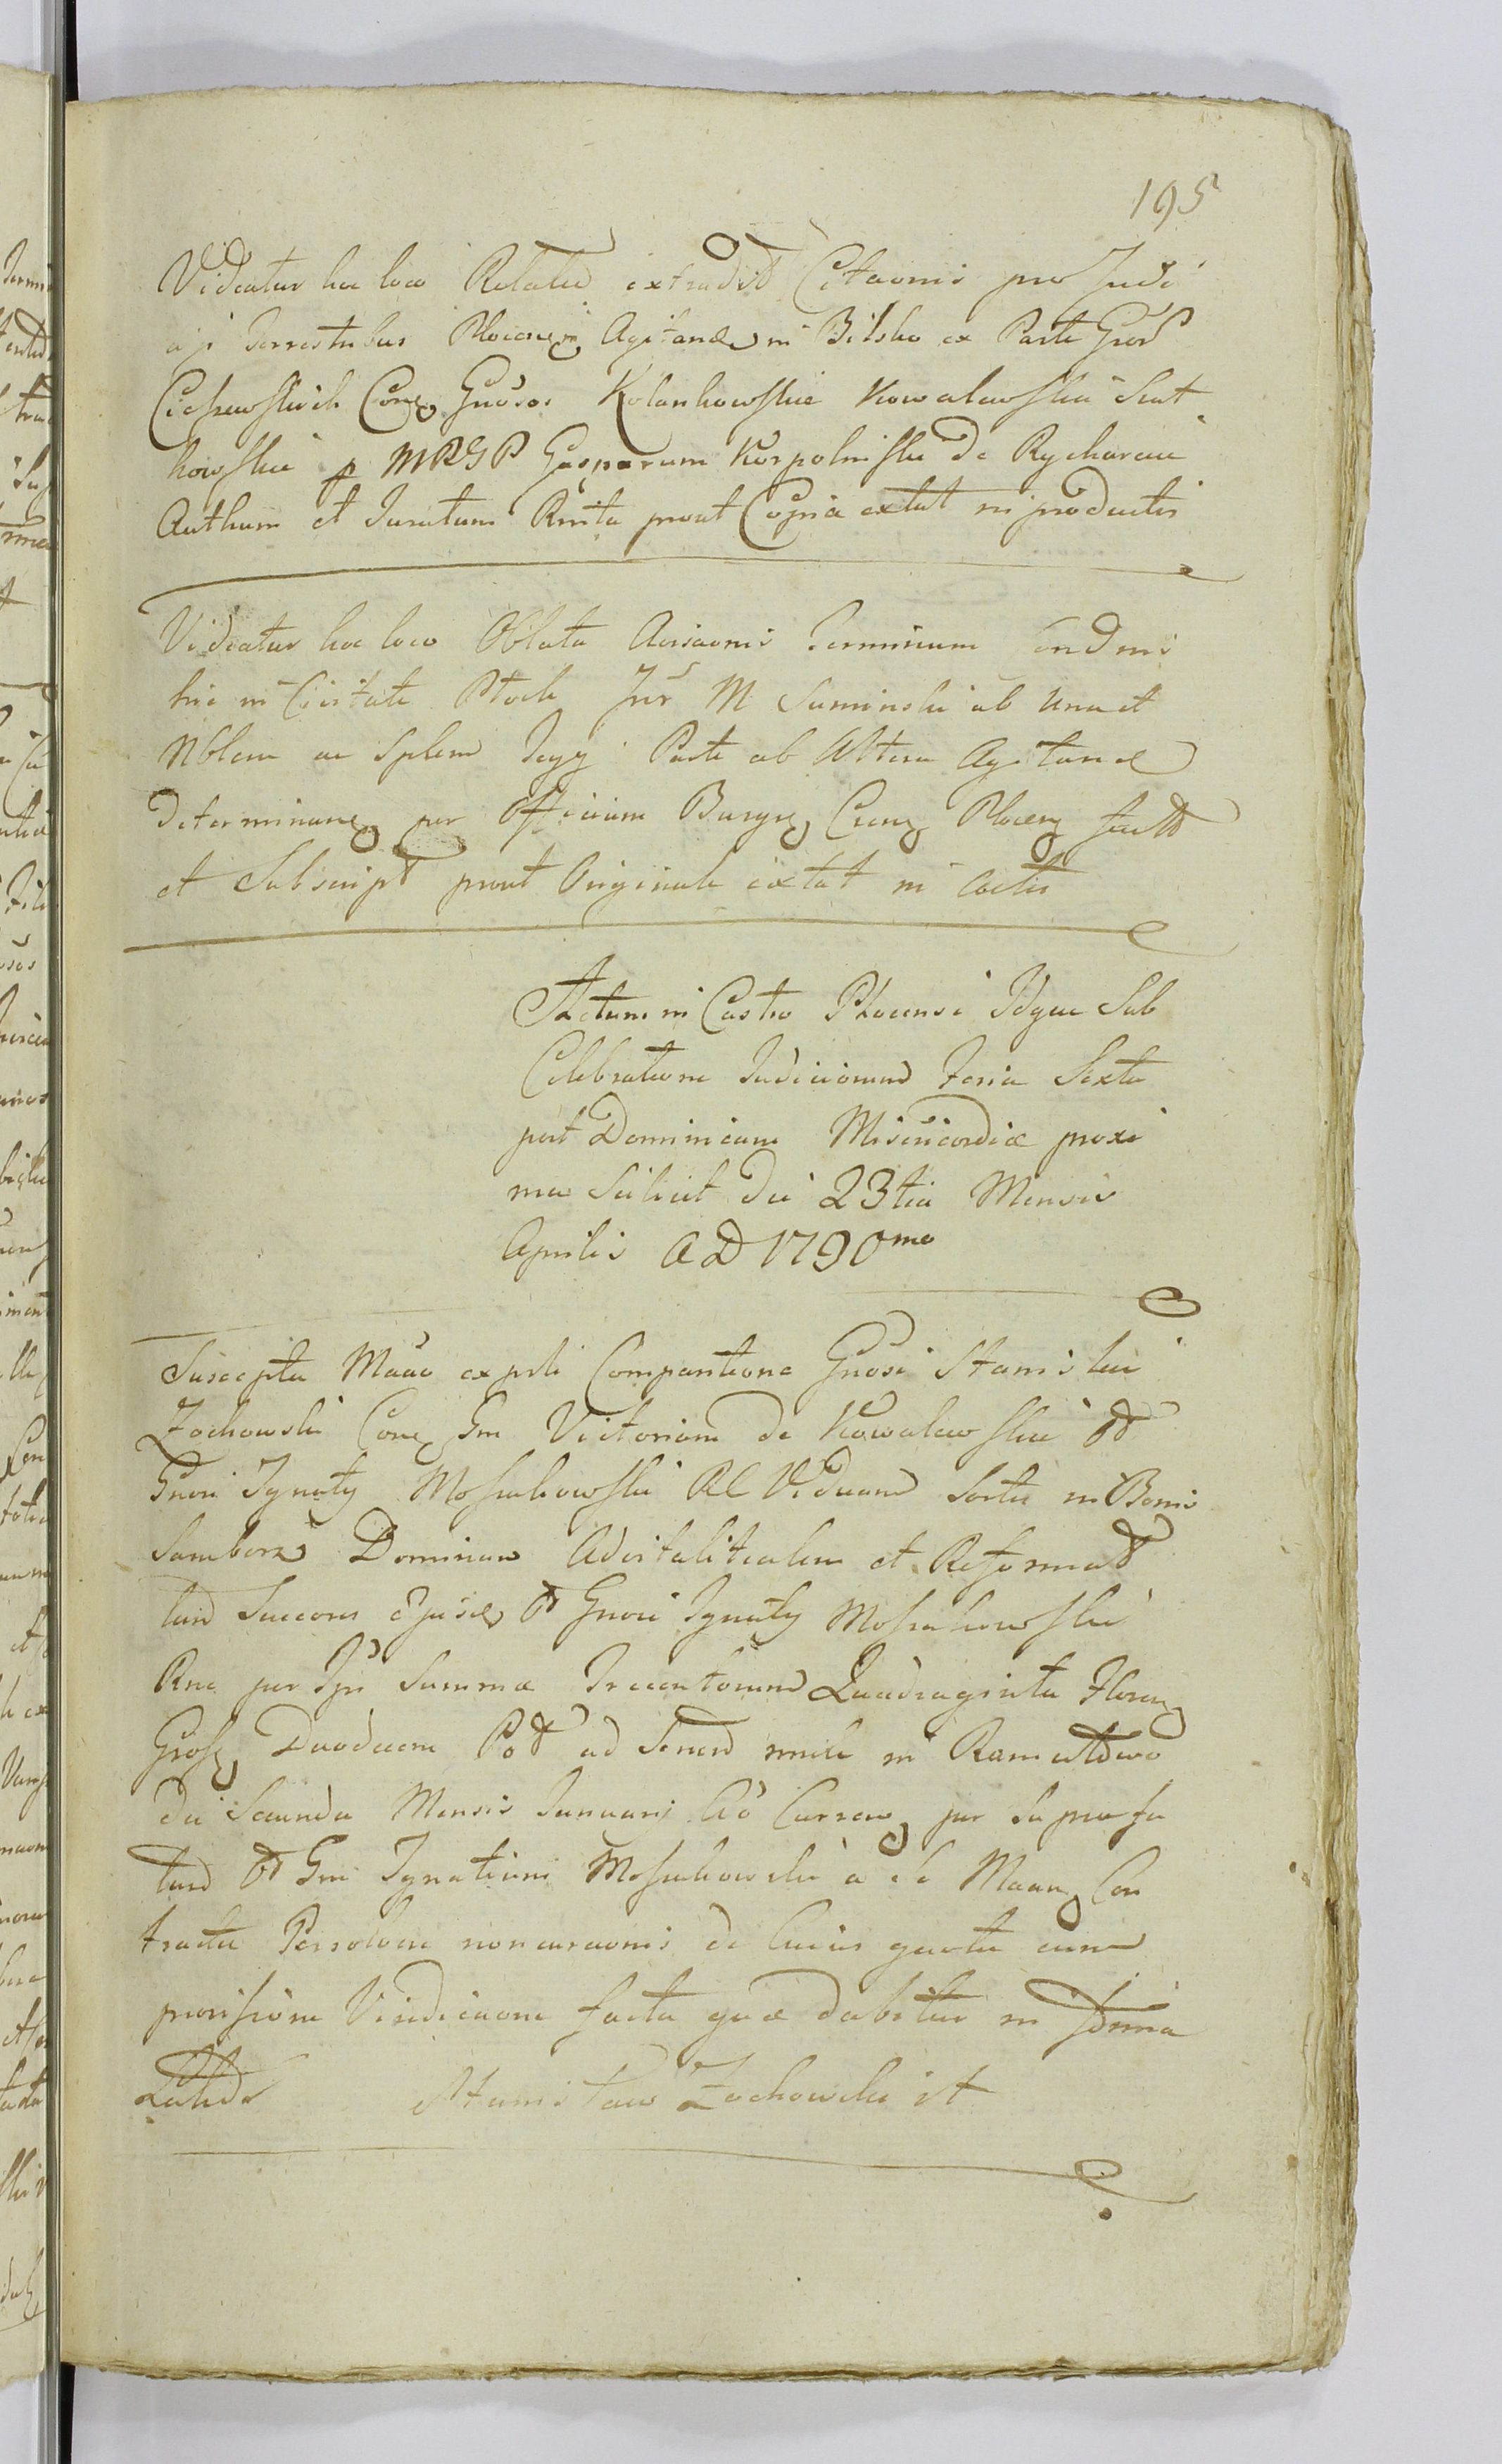 195
Videatur hoc loco Relatio extradit Citaonis pro Judi
ajs Terrestribus Plocen Agitand in Bilsko ex Parte Gnor
Cieszewskich Con Gnosos Kolankowskie Kowalewskie Szut
kowskie p MRGP Gasparum Korpolinski de Rycharcice
Authum et Juratum Rnita prout Copia extat in productis
Videatur hoc loco Oblata Avisaonis Terminum Cond ni
hic in Civitate Plock Inr M Suminski ab una et
Nblem ac Splem Jcyy Parte ab Altera Agitand
Determinan per Officium Burgr Cren Plocen fact
et Subscript prout Originale extat in Actis
Actum in Castro Plocensi Idque Sub
Celebratione Judiciorum Feria Sexta
post Dominicam Misericordiæ proxi
ma Scilicet Die 23tia Mensis
Aprilis AD 1790mo
Suscepta Maăo ex prli Comparitione Gnosi Stanislai
Zochowski Con Gm Victoriam de Kowalewskie
Gnosi Ignaty Mossakowski RC Viduam Sortis in Bonis
Samborz Dominam Advitalitialem et Reformat
tum Succores ejusd Gnosi Ignaty Mossakowski
Rne per Ips Summæ Trecentorum Quadraginta Floren
Gross Duodecem Pol ad Sened mile in Ramutowo
die Secunda Mensis Januarii Ao Curren per Supra fa
tum Gm Ignatium Mossakowski Maan Con
tractu Persolvere noncuraonis de cuius quota cum
provisione Vindicaone facta quæ dabitur in forma
Stanisław Zochowski